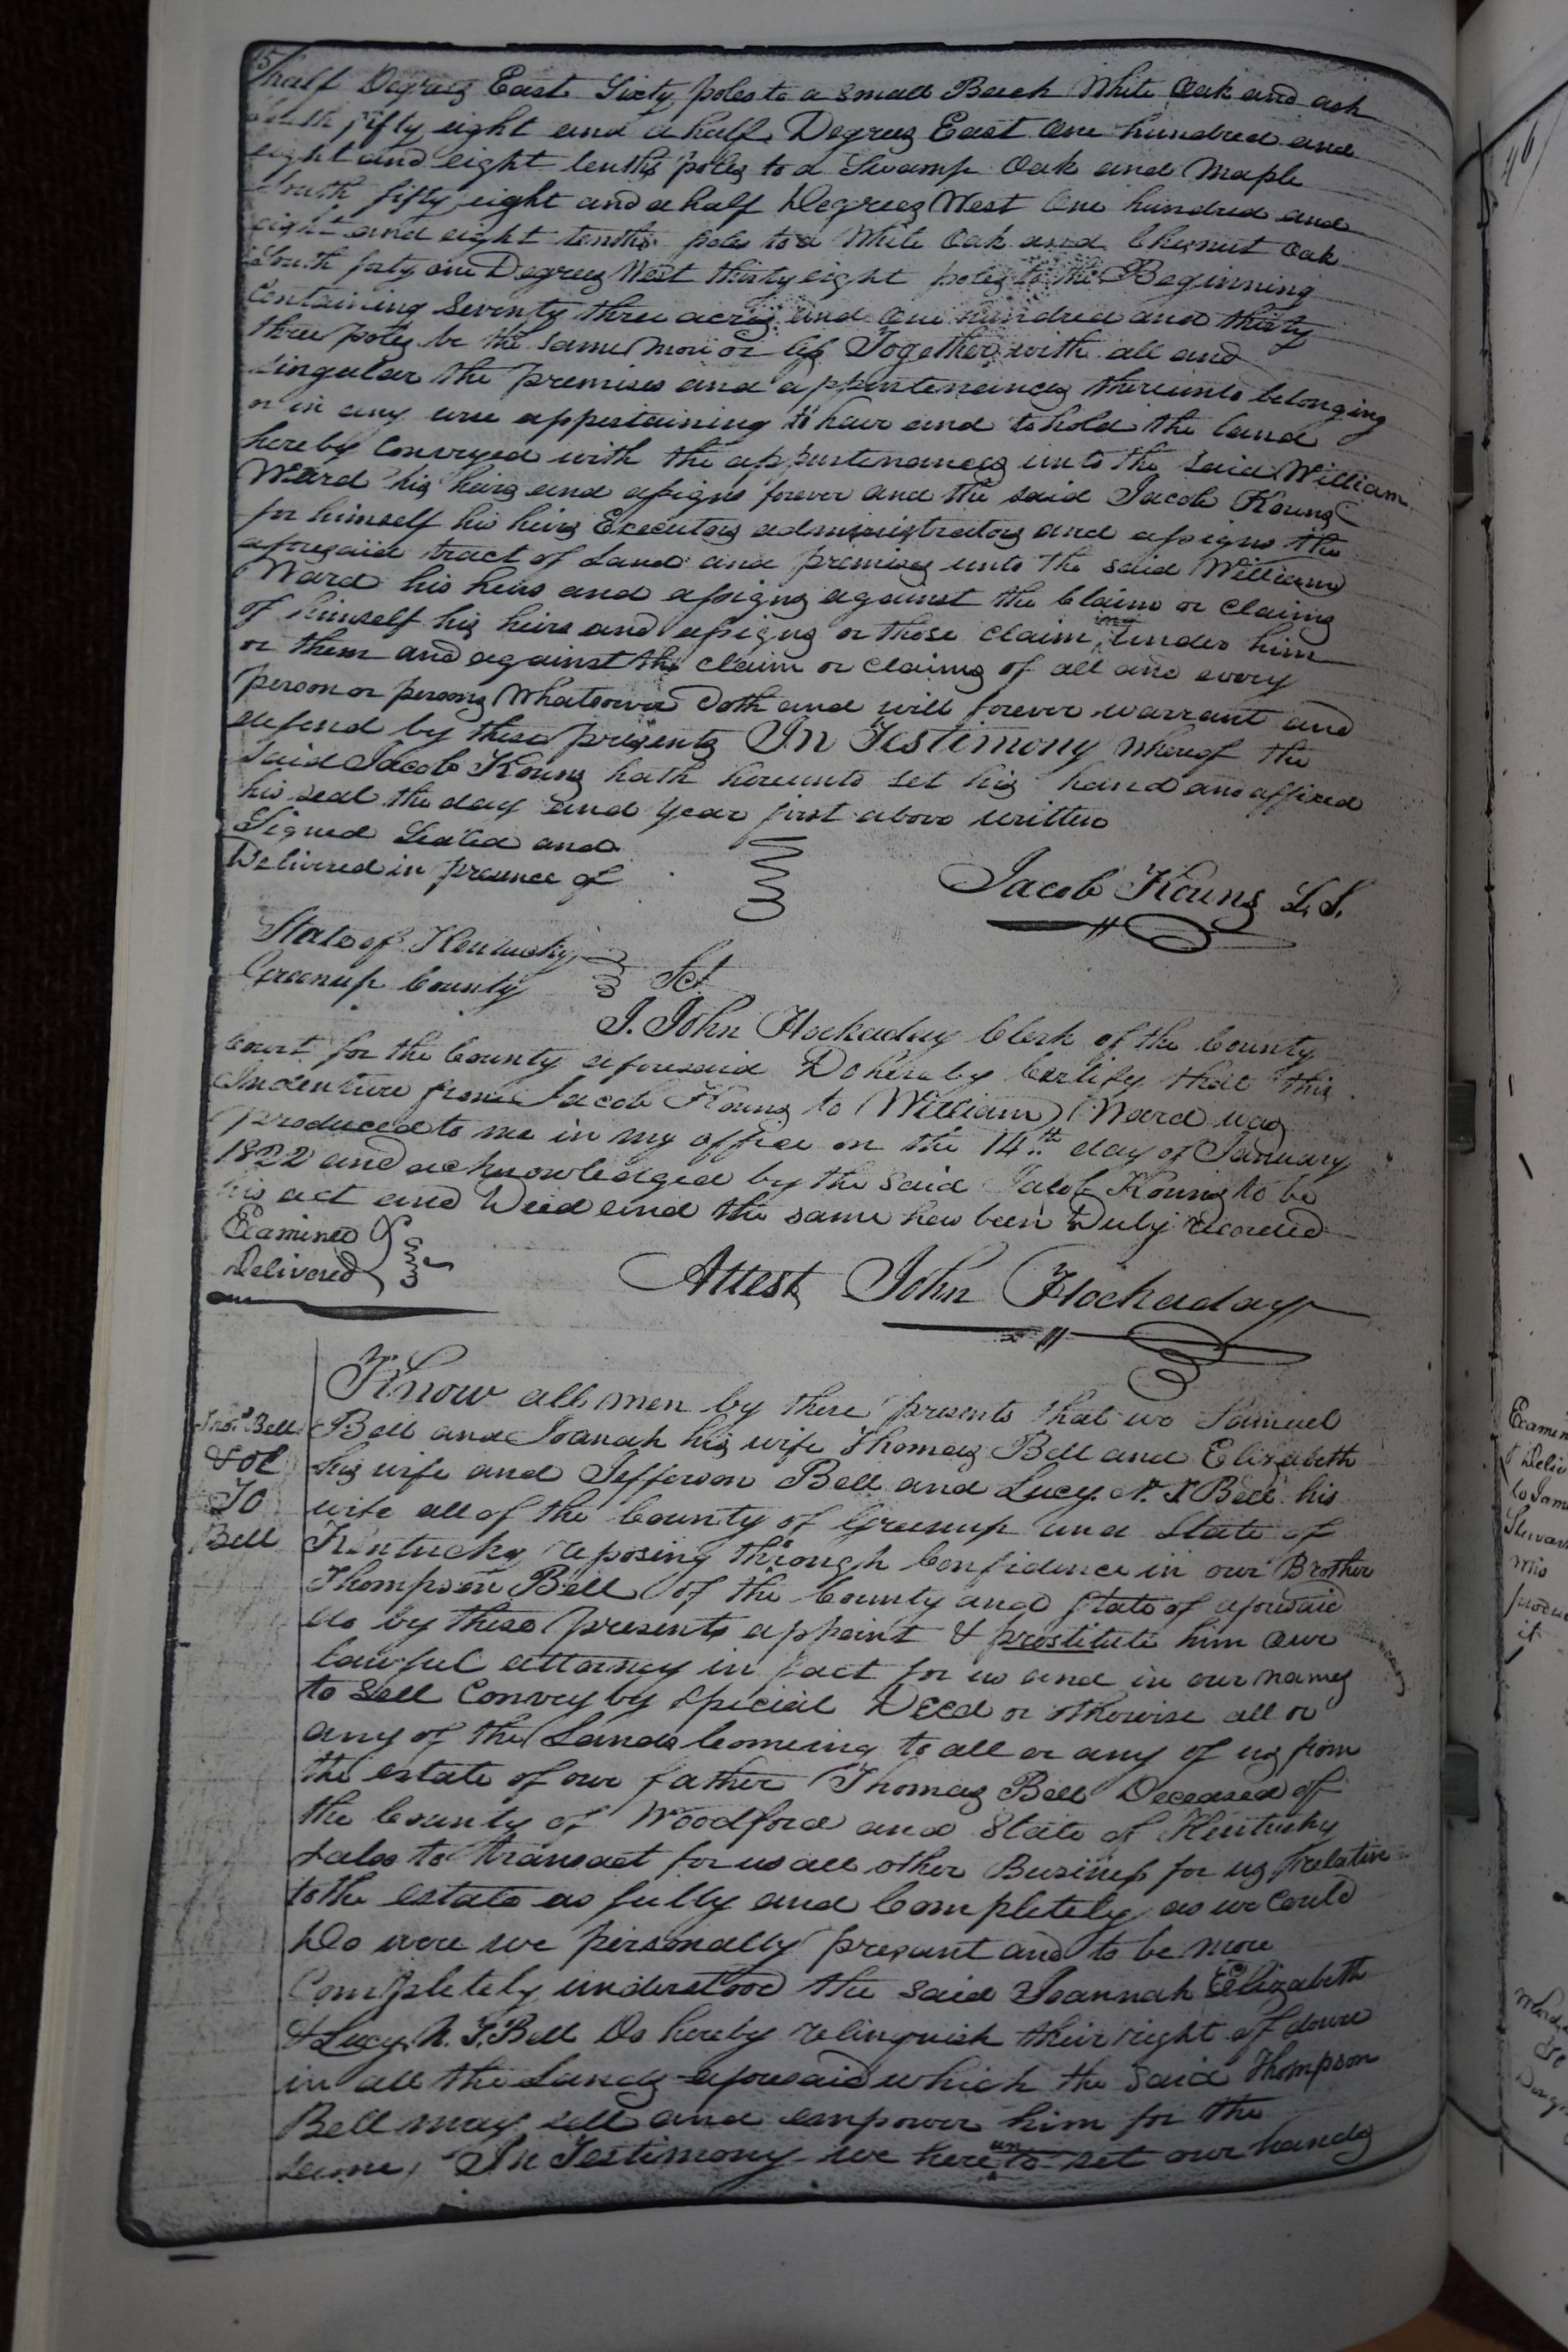 half Degrees East Sixty poles to a small Beech White Oak and ash
South fifty eight and a half Degrees East One hundred and
eight and eight tenths poles to a Swamp Oak and Maple
South fifty eight and a half Degrees West One hundred and
eight and eight tenths poles to a White Oak and Chesnut Oak
South forty one Degrees West thirty eight poles to the Beginning
Containing Seventy three acres and One hundred and thirty
three poles be the same more or less Together with all and
singular the premises and appurtenances thereunto belonging
or in any wise appertaining to have and to hold the land
hereby Conveyed with the appurtenances unto the said William
Ward his heirs and assigns forever and the said Jacob Kouns
for himself his heirs Executors administrators and assigns the
aforesaid tract of Land and premises unto the said William
Ward his heirs and assigns against the Claim or claims
of himself his heirs and assigns or those claim ing under him
or them and against the claim or claims of all and every
person or persons Whatsoever doth and will forever warrant and
defend by these presents In Testimony Whereof the
said Jacob Kouns hath hereunto set his hand and affixed
his seal the day and year first above written
Signed Sealed and
Delivered in presence of
Jacob Kouns L.S.
State of Kentucky
Greenup County Sct
I. John Hockaday Clerk of the County
Court for the County aforesaid Do hereby Certify that this
Indenture from Jacob Kouns to William Ward was
produced to me in my office on the 14th day of January
1822 and acknowledged by the said Jacob Kouns to be
his act and Deed and the same has been Duly recorded
Examined &
Delivered
Attest John Hockaday
Know all men by these presents that we Samuel
Bell and Joanah his wife Thomas Bell and Elizabeth
his wife and Jefferson Bell and Lucy N. T. Bell his
wife all of the County of Greenup and State of
Kentucky reposing through Confidence in our Brother
Thompson Bell of the County and State of aforesaid
do by these presents appoint & prostitute him our
lawful attorney in fact for us and in our names
to sell Convey by special Deed or otherwise all or
any of the Lands Comeing to all or any of us from
the estate of our father Thomas Bell Deceased of
the County of Woodford and State of Kentucky
& also to transact for us all other Business for us relative
to the estate as fully and Completely as we Could
Do were we personally present and to be more
Completely understood the said Joannah Elizabeth
& Lucy N. T. Bell Do hereby relinquish their right of dower
in all the Lands aforesaid which the said Thompson
Bell may sell and empower him for the
same, In Testimony we here un to set our hands
Thos. Bell
To
Bell
46
Examin
Deliv
to Jam
Stewar
it